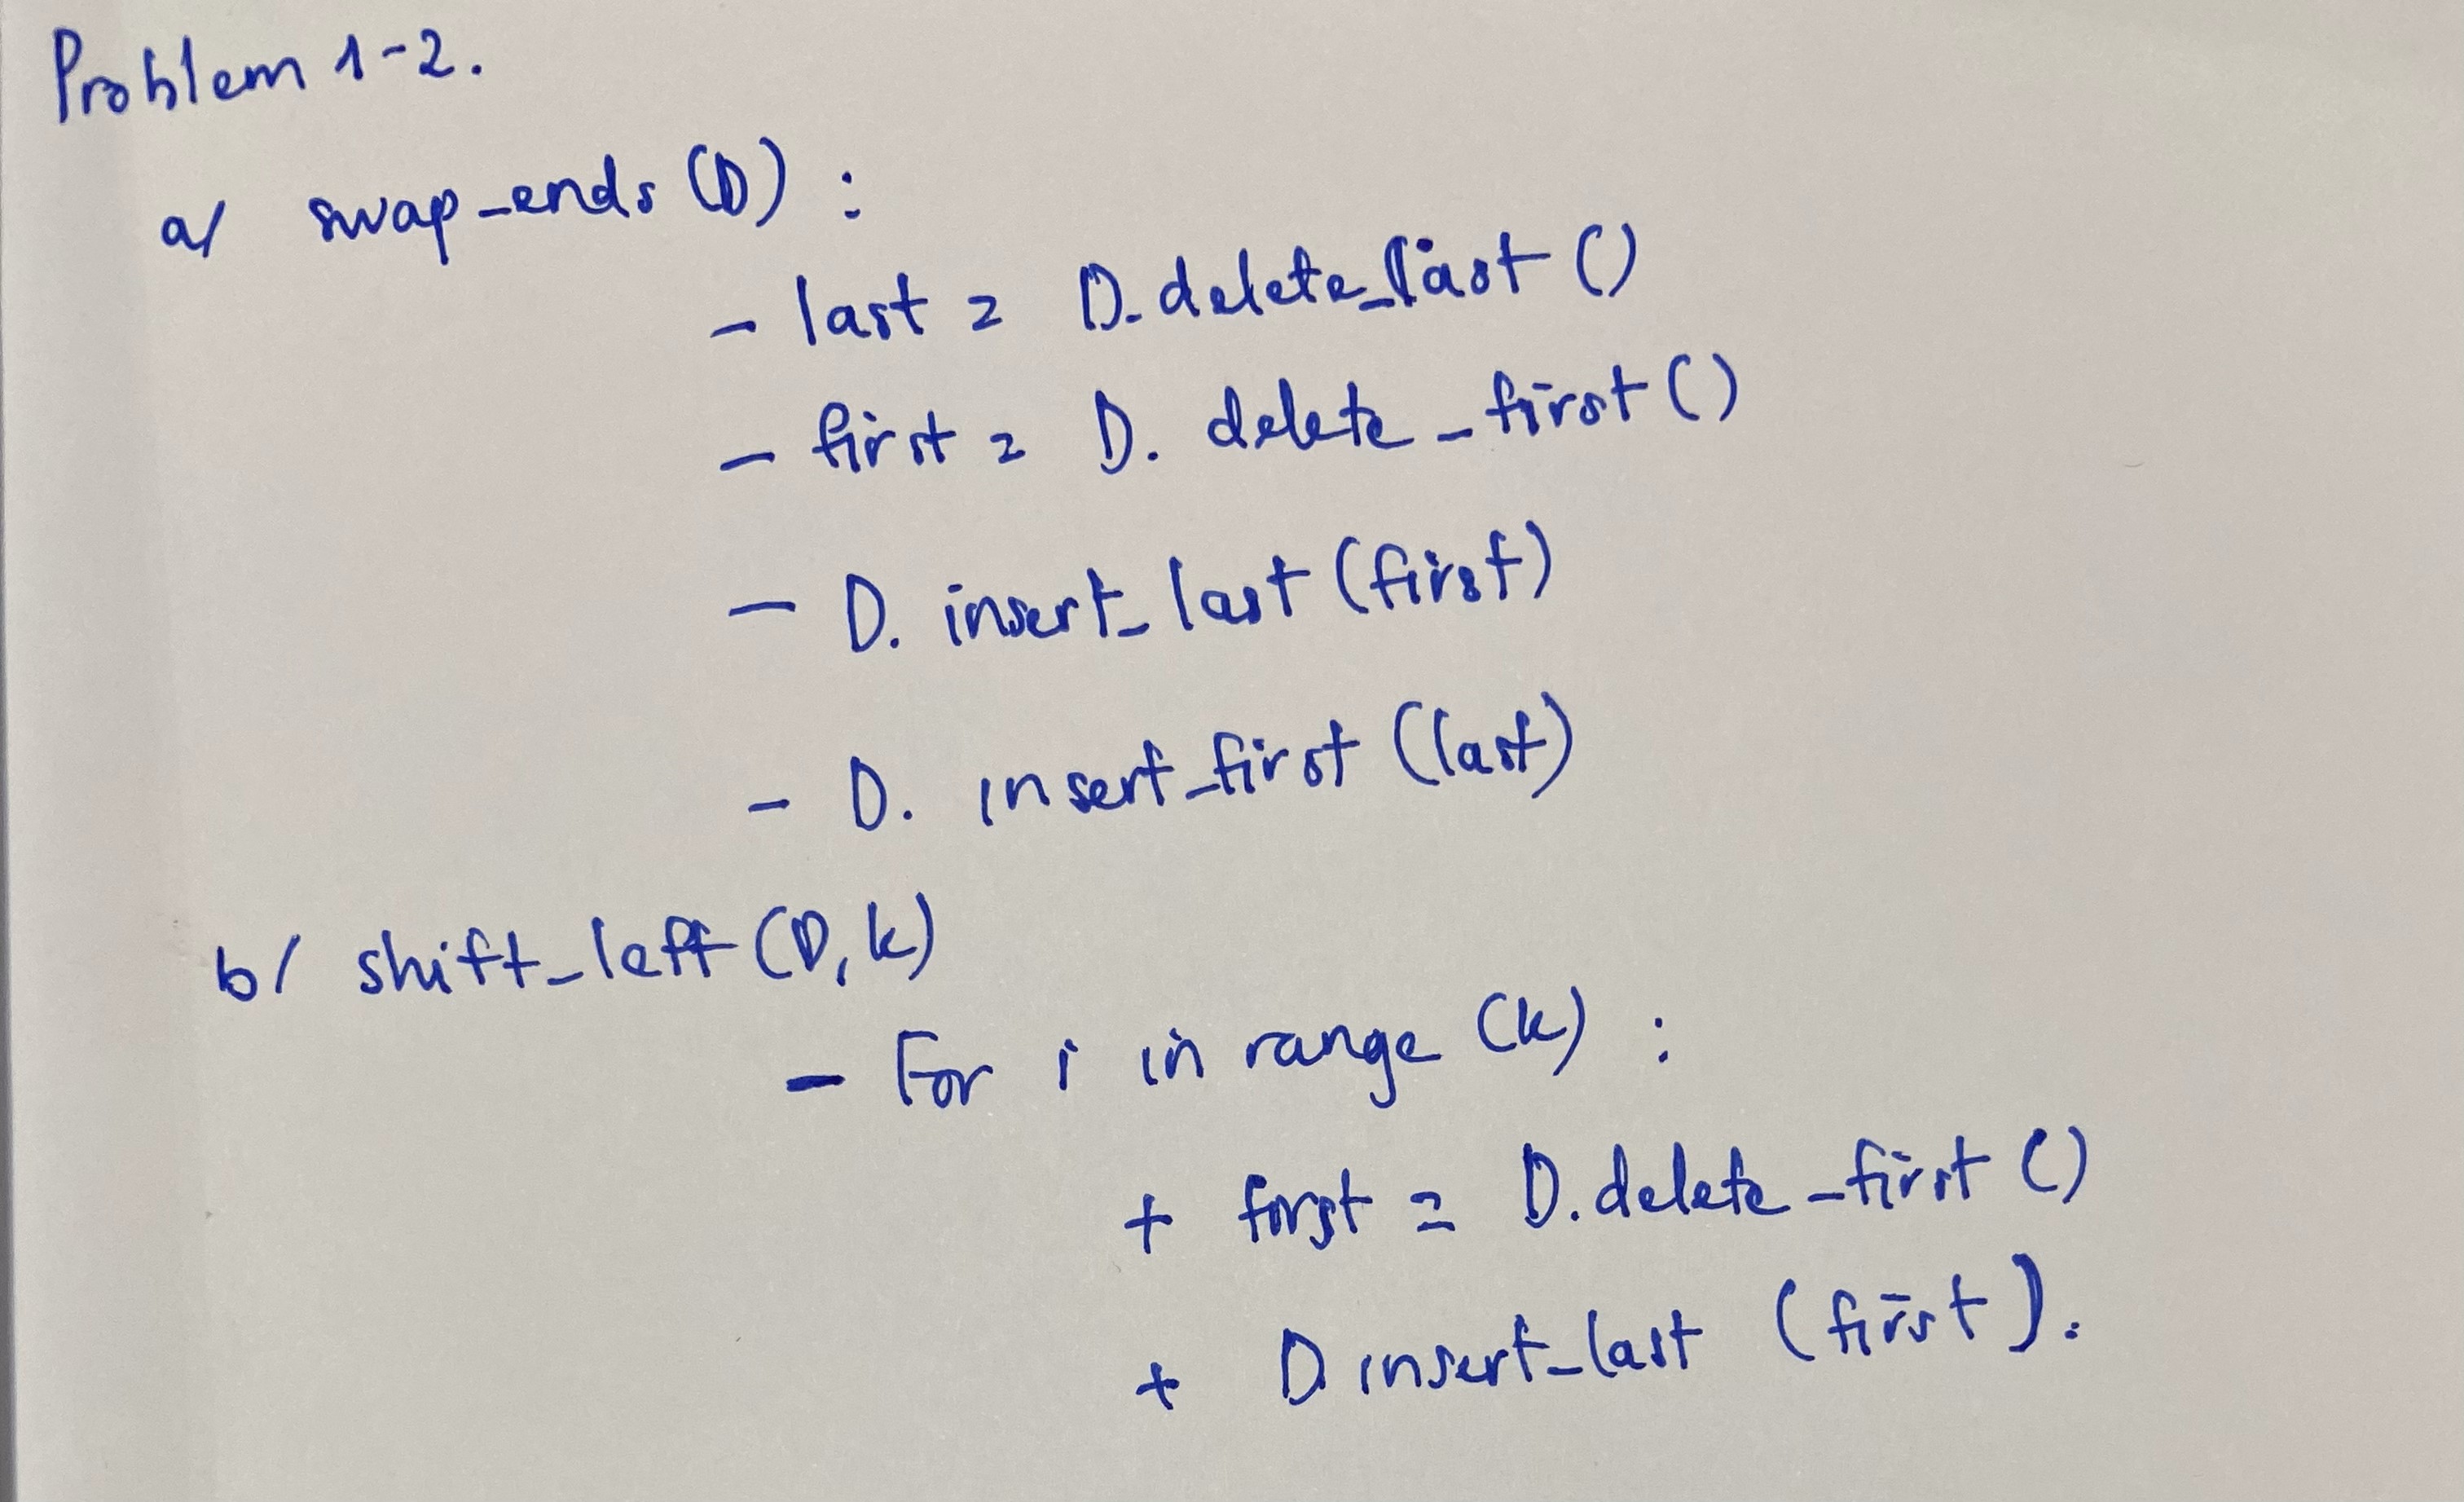 Problem 1-2.
a/ swap_ends (D) :
- last = D. delete_last ()
- first = D. delete_first ()
- D. insert_last (first)
- D. insert_first (last)
b/ shift_left (D, k)
- For i in range (k) :
+ first = D. delete_first ()
+ D insert_last (first).